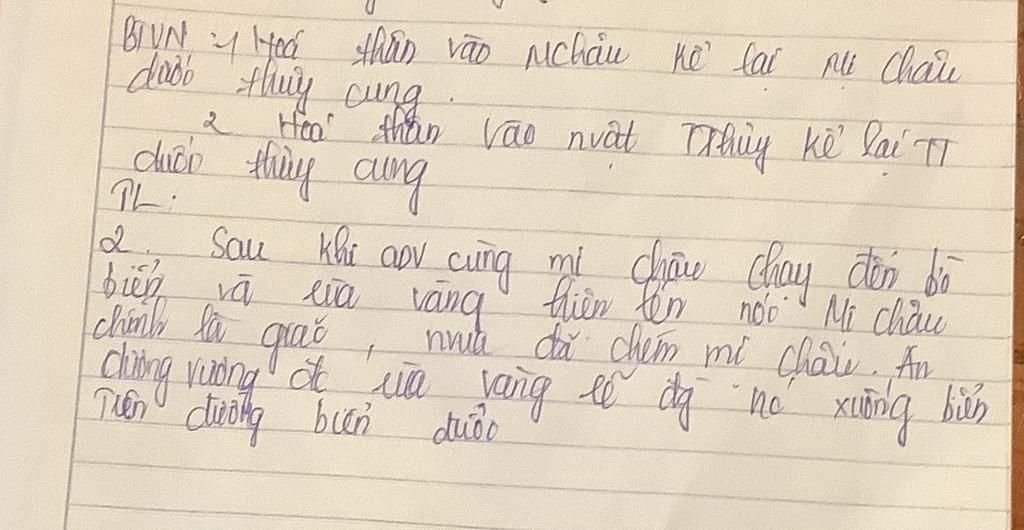 BTVN : 1 Hoá thân vào MChâu kể lại Mị Châu
dưới thủy cung.
2 Hoá thân vào nvật TThủy kể lại TT
dưới thủy cung
TL:
2. Sau khi ADV cùng mị châu chạy đến bờ
biển và rùa vàng hiện lên nói Mị Châu
chính là giặc, nvua đã chém mị châu. An
dương vương đc rùa vàng rẽ nc xuống biển
Trên đường biển dưới